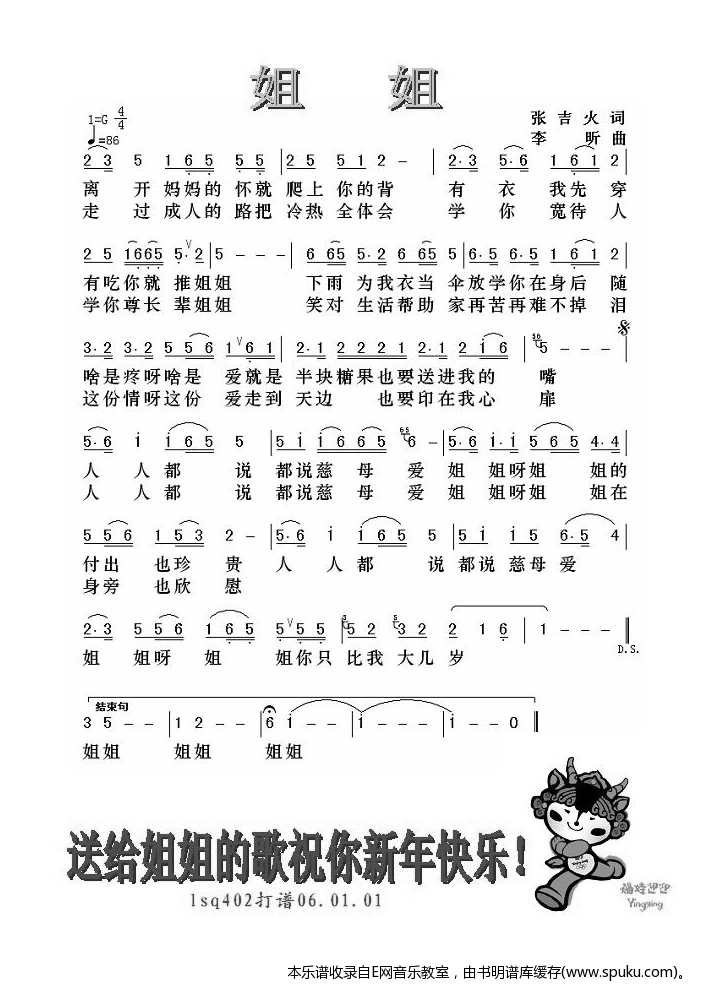 姐 姐
1=G 4/4
♩=86
张吉火词
李 昕 曲
2 3 5 1 6 5 5·5 | 2 5 5 1 2 - | 2·3 5·6 1 6 1 2 |
离 开 妈妈的 怀就 爬上 你的背 有 衣 我先 穿
走 过 成人的 路把 冷热 全体会 学 你 宽待 人
2 5 1665 5·2 | 5 - - - | 6 65 5·6 5·2 5 | 6·5 6·5 1 6 1 2 |
有吃你就 推姐姐 下雨 为我衣当 伞放学你在身后 随
学你尊长 辈姐姐 笑对 生活帮助 家再苦再难不掉 泪
3·2 3·2 5 5 6 1 6 1 | 2·1 2 2 2 1 2·2 1 6 | 5 - - |
啥是疼呀啥是 爱就是 半块糖果也要送进我的 嘴
这份情呀这份 爱走到 天边 也要印在我心 扉
5·6 1 1 6 5 5 | 5 1 6 5 5 6 - | 5·6 1·1 5 5 6 4·4 |
人 人都 说 都说慈 母 爱 姐 姐呀姐 姐的
人 人都 说 都说慈 母 爱 姐 姐呀姐 姐在
5 5 6 1 5 3 2 - | 5·6 1 1 6 5 5 | 5 1 5 6·5 4 |
付出 也珍 贵 人 人都 说都说慈母爱
身旁 也欣 慰
2·3 5 5 6 1 6 5 5·5 5 | 5 2 3 2 2 1 6 | 1 - - - |
D.S.
姐 姐呀 姐 姐你只 比我 大几 岁
结束句
3 5 - - | 1 2 - - | 6 1 - - | 1 - - - | 1 - - 0 ‖
姐姐 姐姐 姐姐
送给姐姐的歌祝你新年快乐！
lsq402打谱06.01.01
福娃迎迎
Yingying
本乐谱收录自E网音乐教室，由书明谱库缓存(www.spuku.com)。